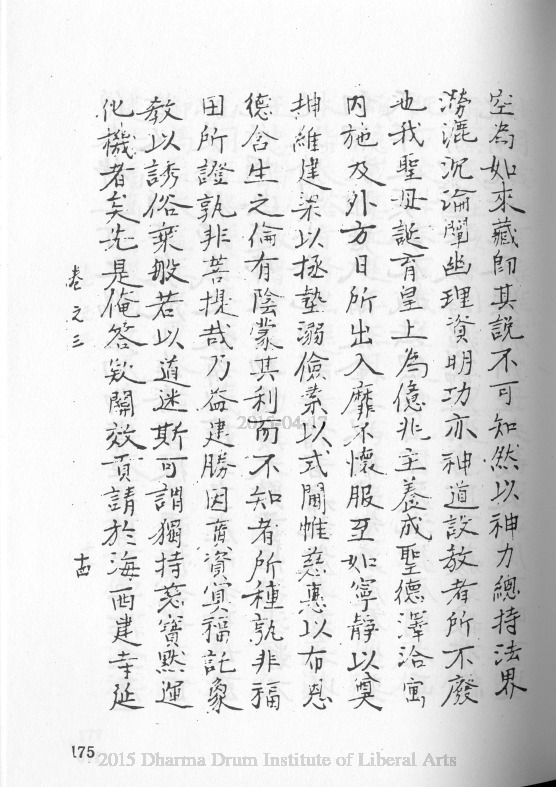 空為如來藏即其說不可知然以神力總持法界
澇漉沉淪闡幽理資明功亦神道設教者所不廢
也我聖母誕育皇上為億兆主養成聖德澤洽寓
內施及外方日所出入靡不懷服至如寧靜以奠
坤維建梁以拯墊溺儉素以式闈帷慈惠以布恩
德含生之倫有陰蒙其利而不知者所種孰非福
田所證孰非菩提哉乃益建勝因啇資冥福託象
教以誘俗乘般若以道迷斯可謂獨持慈寶默運
化機者矣先是俺答欵關效貢請於海西建寺延
卷之三
十四
175
2015-04-17
2015 Dharma Drum Institute of Liberal Arts